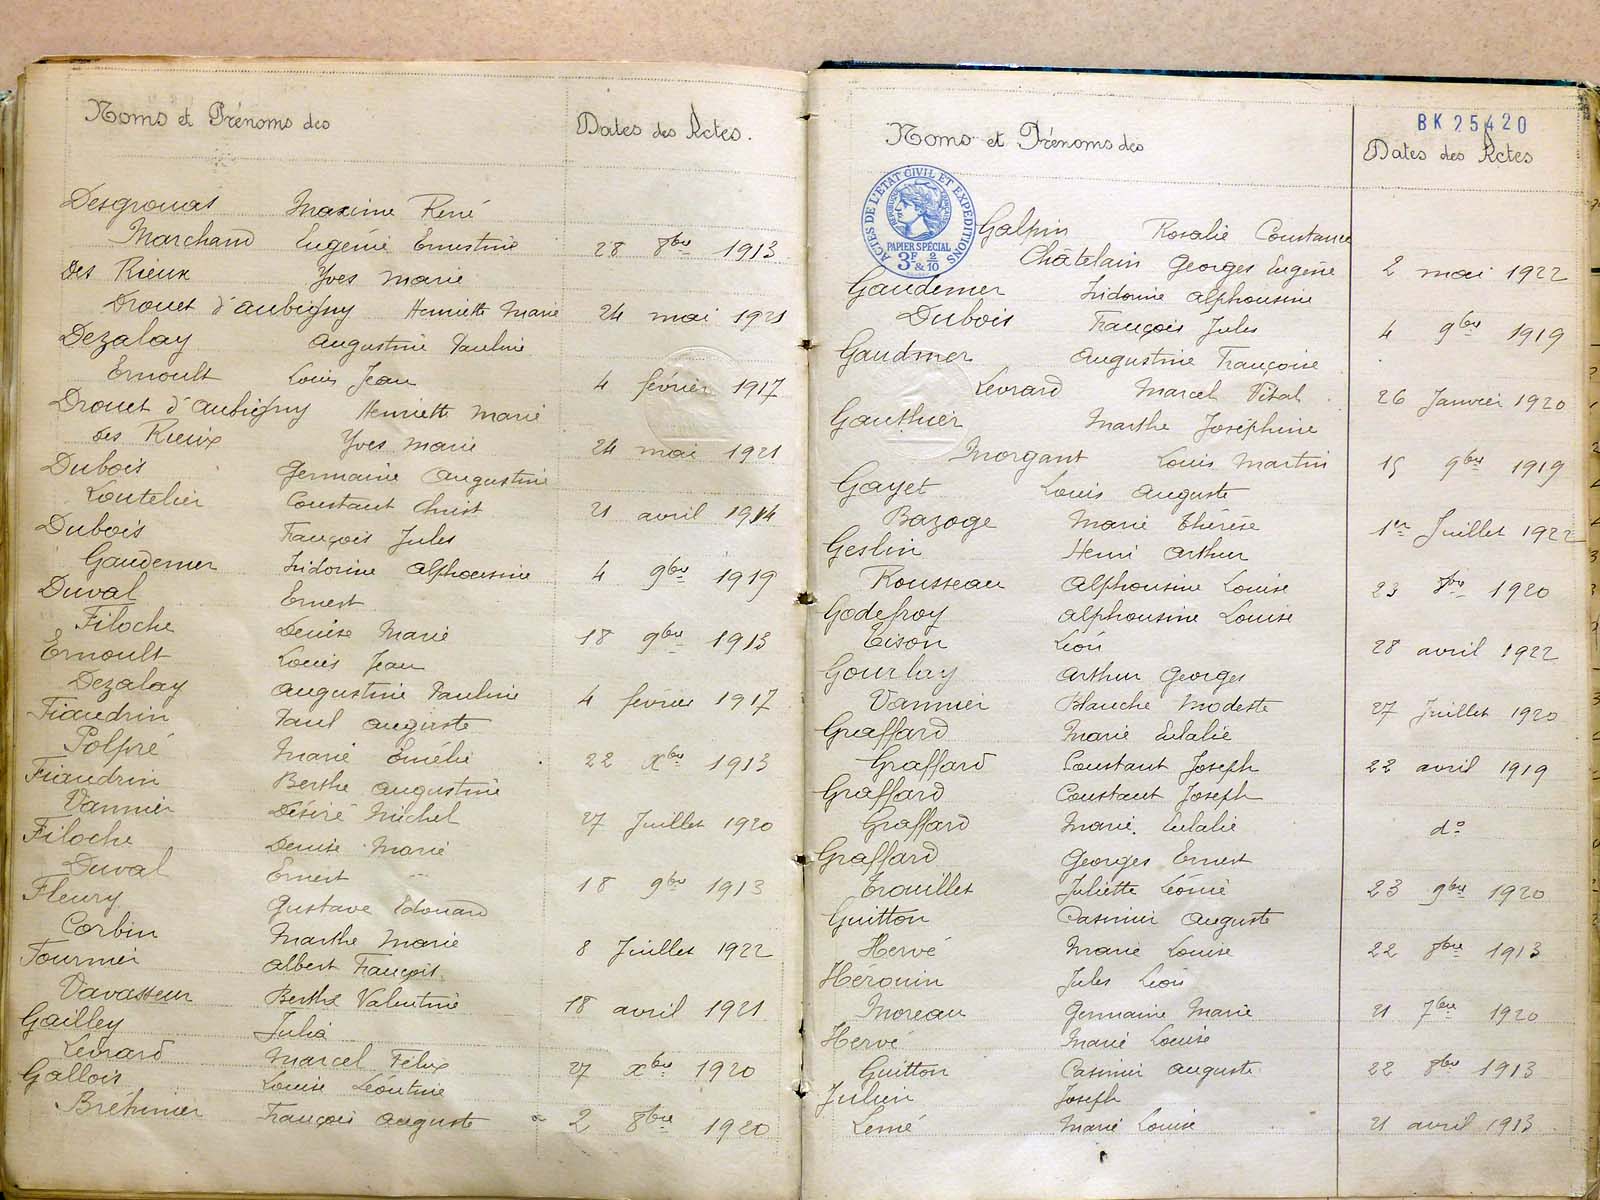 Noms et Prénoms des Dates des Actes.
Desgrouas Maxime René
Marchand Eugénie Ernestine 28 8bre 1913
des Rieux Yves Marie
Drouet d'Aubigny Henriette Marie 24 mai 1921
Dezalay Augustine Pauline
Ernoult Louis Jean 4 février 1917
Drouet d'Aubigny Henriette Marie
des Rieux Yves Marie 24 mai 1921
Dubois Germaine Augustine
Loutelier Constant Christ 21 avril 1914
Dubois François Jules
Gaudemer Isidorine Alphonsine 4 9bre 1919
Duval Ernest
Filoche Denise Marie 18 9bre 1913
Ernoult Louis Jean
Dezalay Augustine Pauline 4 février 1917
Fiandrin Paul Auguste
Polpré Marie Émélie 22 xbre 1913
Fiandrin Berthe Augustine
Vannier Désiré Michel 27 Juillet 1920
Filoche Denise Marie
Duval Ernest 18 9bre 1913
Fleury Gustave Edouard
Corbin Marthe Marie 8 Juillet 1922
Fournier Albert François
Vavasseur Berthe Valentine 18 avril 1921
Gailley Julia
Levrard Marcel Félix 27 xbre 1920
Gallois Louise Léontine
Bréhinier François Auguste 2 8bre 1920
BK 25420
Noms et Prénoms des Dates des Actes
ACTES DE L'ÉTAT CIVIL ET EXPÉDITIONS
PAPIER SPÉCIAL
3F & 2/10
Galpin Rosalie Constance
Châtelain Georges Eugène 2 mai 1922
Gaudemer Isidorine Alphonsine
Dubois François Jules 4 9bre 1919
Gaudmer Augustine Françoise
Levrard Marcel Vital 26 Janvier 1920
Gauthier Marthe Joséphine
Morgant Louis Martin 15 9bre 1919
Gayet Louis Auguste
Bazoge Marie Thérèse 1er Juillet 1922
Geslin Henri Arthur
Rousseau Alphonsine Louise 23 8bre 1920
Godefroy Alphonsine Louise
Tison Léon 28 avril 1922
Gourlay Arthur Georges
Vannier Blanche Modeste 27 Juillet 1920
Graffard Marie Eulalie
Graffard Constant Joseph 22 avril 1919
Graffard Constant Joseph
Graffard Marie Eulalie do
Graffard Georges Ernest
Trouillet Juliette Léonie 23 9bre 1920
Guitton Casimir Auguste
Hervé Marie Louise 22 8bre 1913
Hérouin Jules Léon
Moreau Germaine Marie 21 7bre 1920
Hervé Marie Louise
Guitton Casimir Auguste 22 8bre 1913
Julien Joseph
Lemé Marie Louise 21 avril 1913